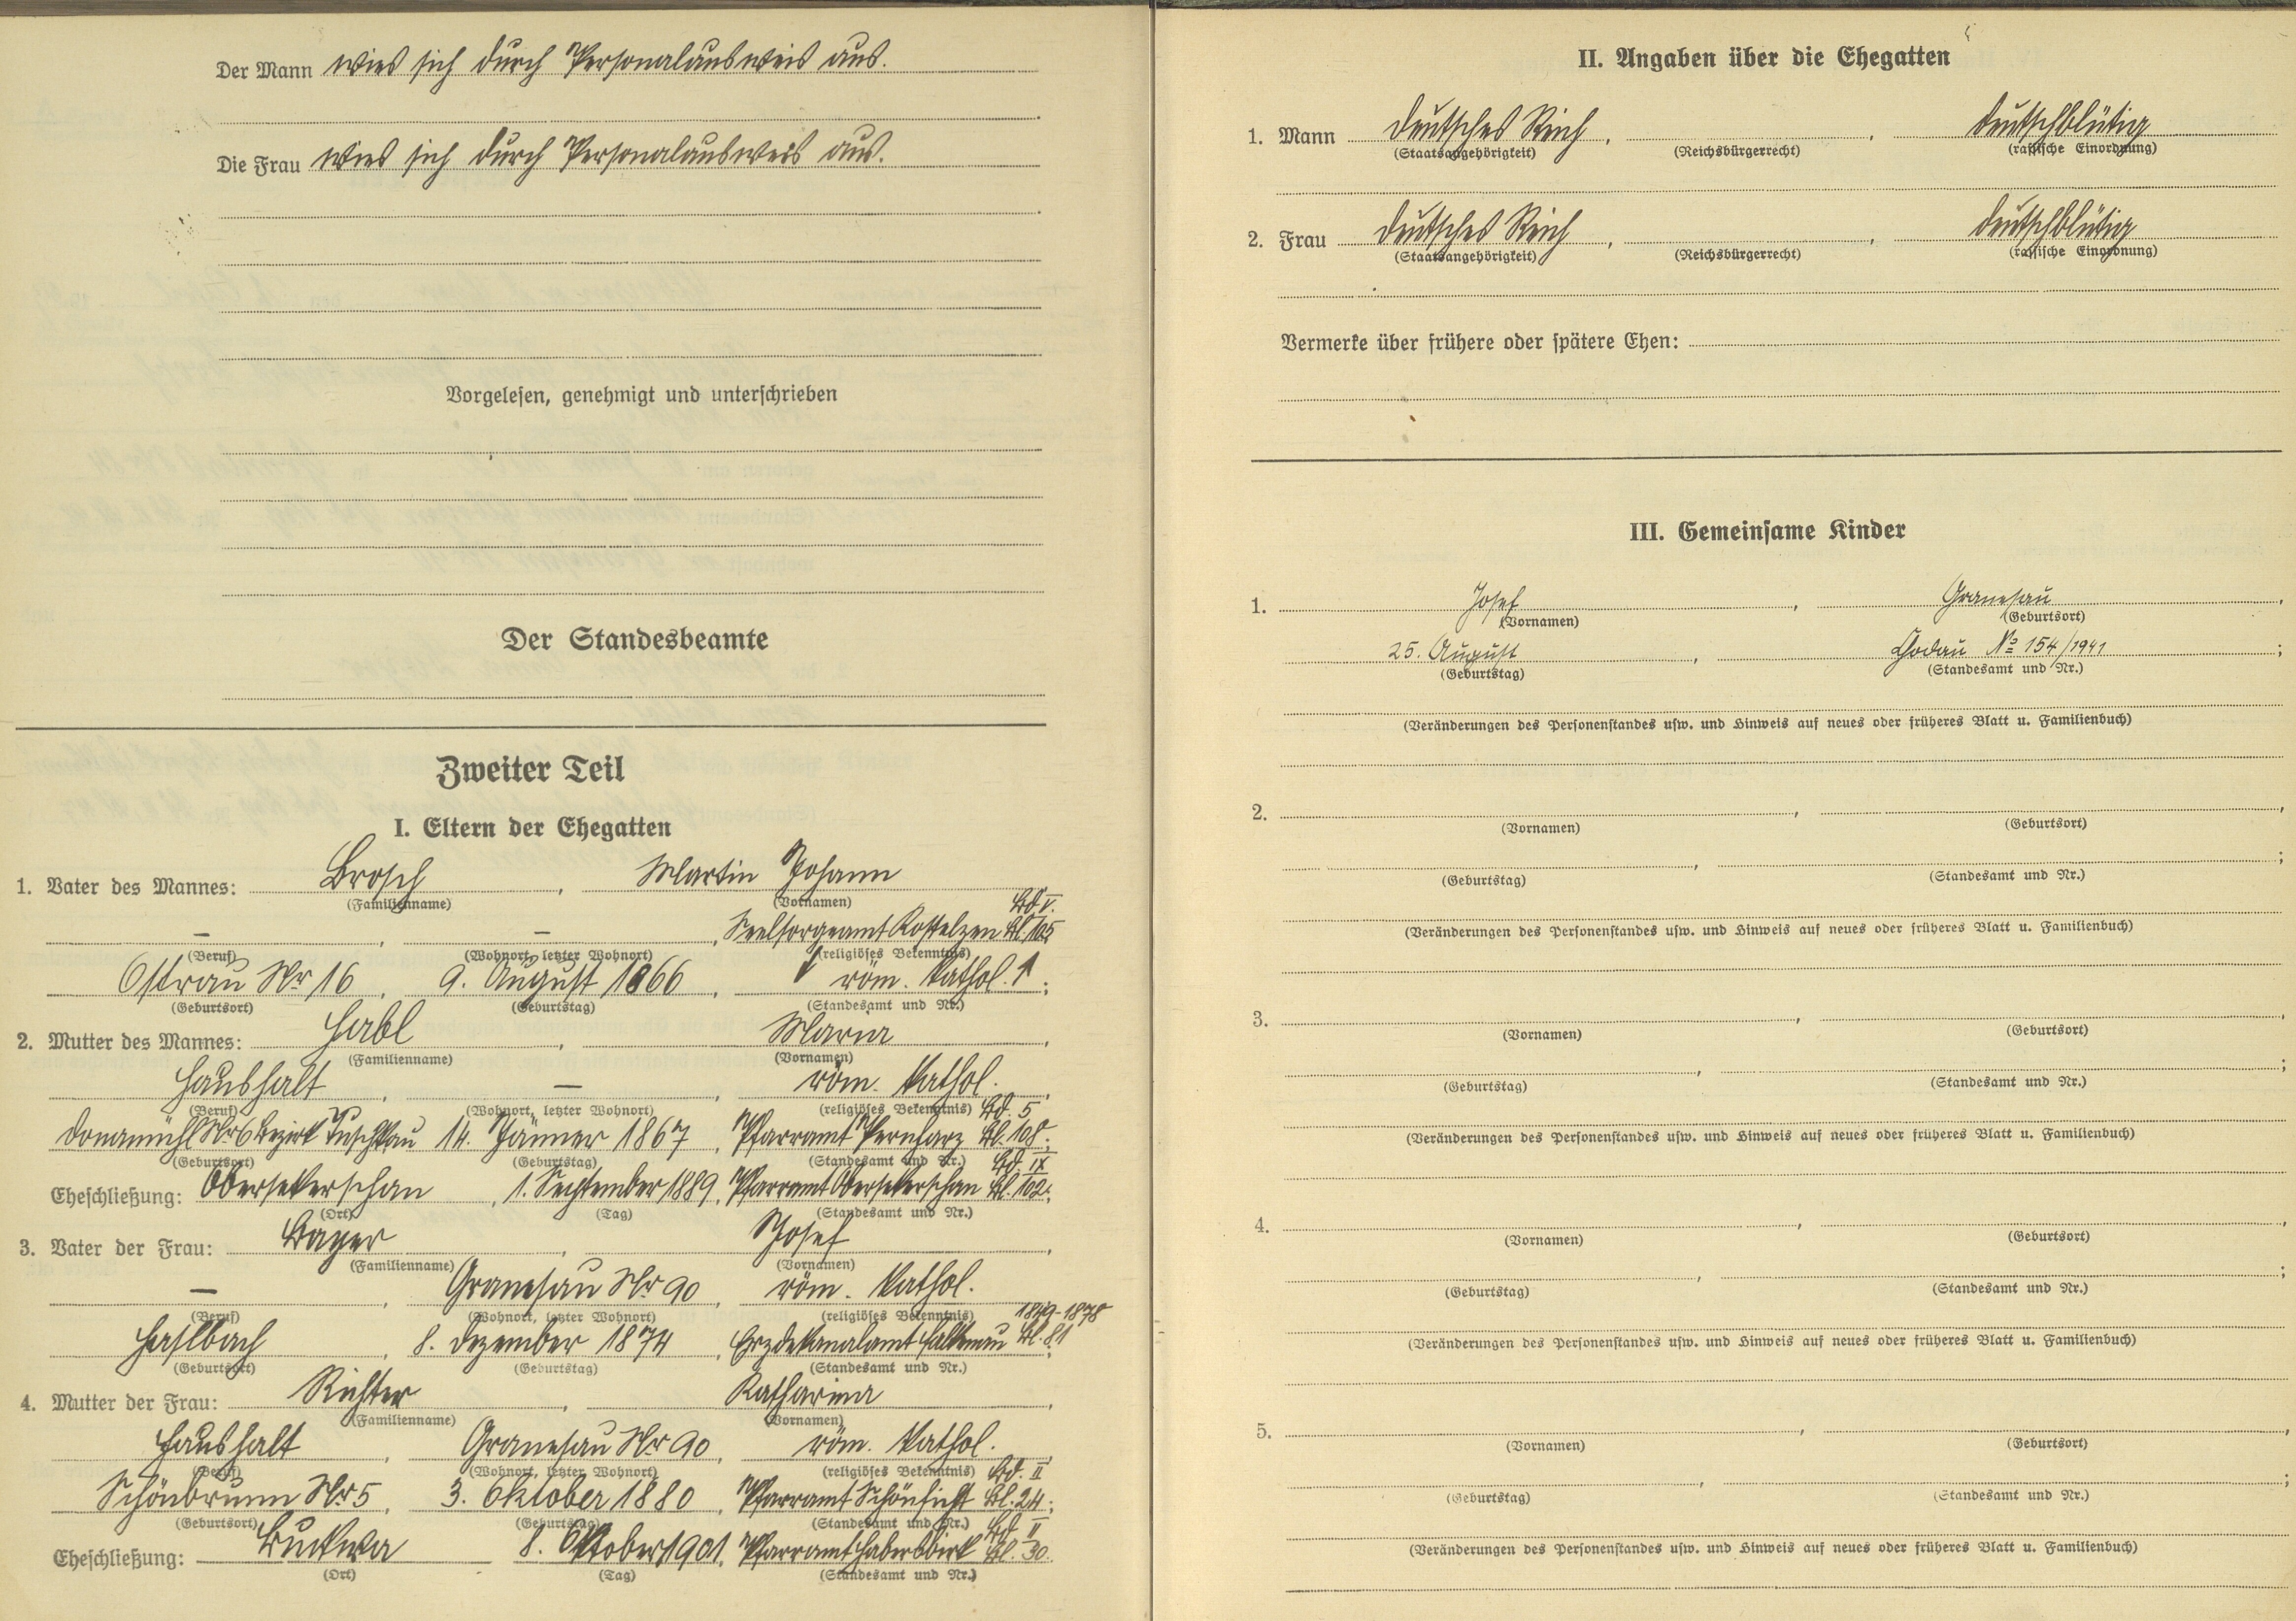 Der Mann wies sich durch Personalausweis aus.
Die Frau wies sich durch Personalausweis aus.
Vorgelesen, genehmigt und unterschrieben
Der Standesbeamte
Zweiter Teil
I. Eltern der Ehegatten
1. Vater des Mannes: Brosch, Martin Johann
(Familienname) (Vornamen) Bd V.
—, —, Seelsorgeamt Kostelzen Bl. 105
(Beruf) (Wohnort, letzter Wohnort) (religiöses Bekenntnis)
Ostrau Nr 16, 9. August 1866, röm. kathol.;
(Geburtsort) (Geburtstag) (Standesamt und Nr.)
2. Mutter des Mannes: Habl, Maria,
(Familienname) (Vornamen)
Haushalt, —, röm. kathol.,
(Beruf) (Wohnort, letzter Wohnort) (religiöses Bekenntnis) Bd. 5
Donamühl Nr 6 Bezirk Tuschkau 14. Jänner 1867, Pfarramt Pernharz Bl. 108;
(Geburtsort) (Geburtstag) (Standesamt und Nr.) Bd. IX
Eheschließung: Obersekerschan, 1. September 1889, Pfarramt Obersekerschan Bl. 102;
(Ort) (Tag) (Standesamt und Nr.)
3. Vater der Frau: Bayer, Josef,
(Familienname) (Vornamen)
—, Granesau Nr 90, röm. kathol.
(Beruf) (Wohnort, letzter Wohnort) (religiöses Bekenntnis) 1849-1878
Haslbach, 8. Dezember 1874, Erzdekanalamt Falkenau Bl. 81;
(Geburtsort) (Geburtstag) (Standesamt und Nr.)
4. Mutter der Frau: Richter, Katharina,
(Familienname) (Vornamen)
Haushalt, Granesau Nr 90, röm. kathol.,
(Beruf) (Wohnort, letzter Wohnort) (religiöses Bekenntnis) Bd. II
Schönbrunn Nr 5, 3. Oktober 1880, Pfarramt Schönficht Bl. 24;
(Geburtsort) (Geburtstag) (Standesamt und Nr.) Bd. II
Eheschließung: Buckwa, 8. Oktober 1901, Pfarramt Habersbirk Bl. 30.
(Ort) (Tag) (Standesamt und Nr.)
II. Angaben über die Ehegatten
1. Mann Deutsches Reich, , deutschblütig
(Staatsangehörigkeit) (Reichsbürgerrecht) (rassische Einordnung)
2. Frau Deutsches Reich, , deutschblütig
(Staatsangehörigkeit) (Reichsbürgerrecht) (rassische Einordnung)
Vermerke über frühere oder spätere Ehen:
III. Gemeinsame Kinder
1. Josef, Granesau,
(Vornamen) (Geburtsort)
25. August, Chodau № 154/1941;
(Geburtstag) (Standesamt und Nr.)
(Veränderungen des Personenstandes usw. und Hinweis auf neues oder früheres Blatt u. Familienbuch)
2. , ,
(Vornamen) (Geburtsort)
, ;
(Geburtstag) (Standesamt und Nr.)
(Veränderungen des Personenstandes usw. und Hinweis auf neues oder früheres Blatt u. Familienbuch)
3. , ,
(Vornamen) (Geburtsort)
, ;
(Geburtstag) (Standesamt und Nr.)
(Veränderungen des Personenstandes usw. und Hinweis auf neues oder früheres Blatt u. Familienbuch)
4. , ,
(Vornamen) (Geburtsort)
, ;
(Geburtstag) (Standesamt und Nr.)
(Veränderungen des Personenstandes usw. und Hinweis auf neues oder früheres Blatt u. Familienbuch)
5. , ,
(Vornamen) (Geburtsort)
, ;
(Geburtstag) (Standesamt und Nr.)
(Veränderungen des Personenstandes usw. und Hinweis auf neues oder früheres Blatt u. Familienbuch)